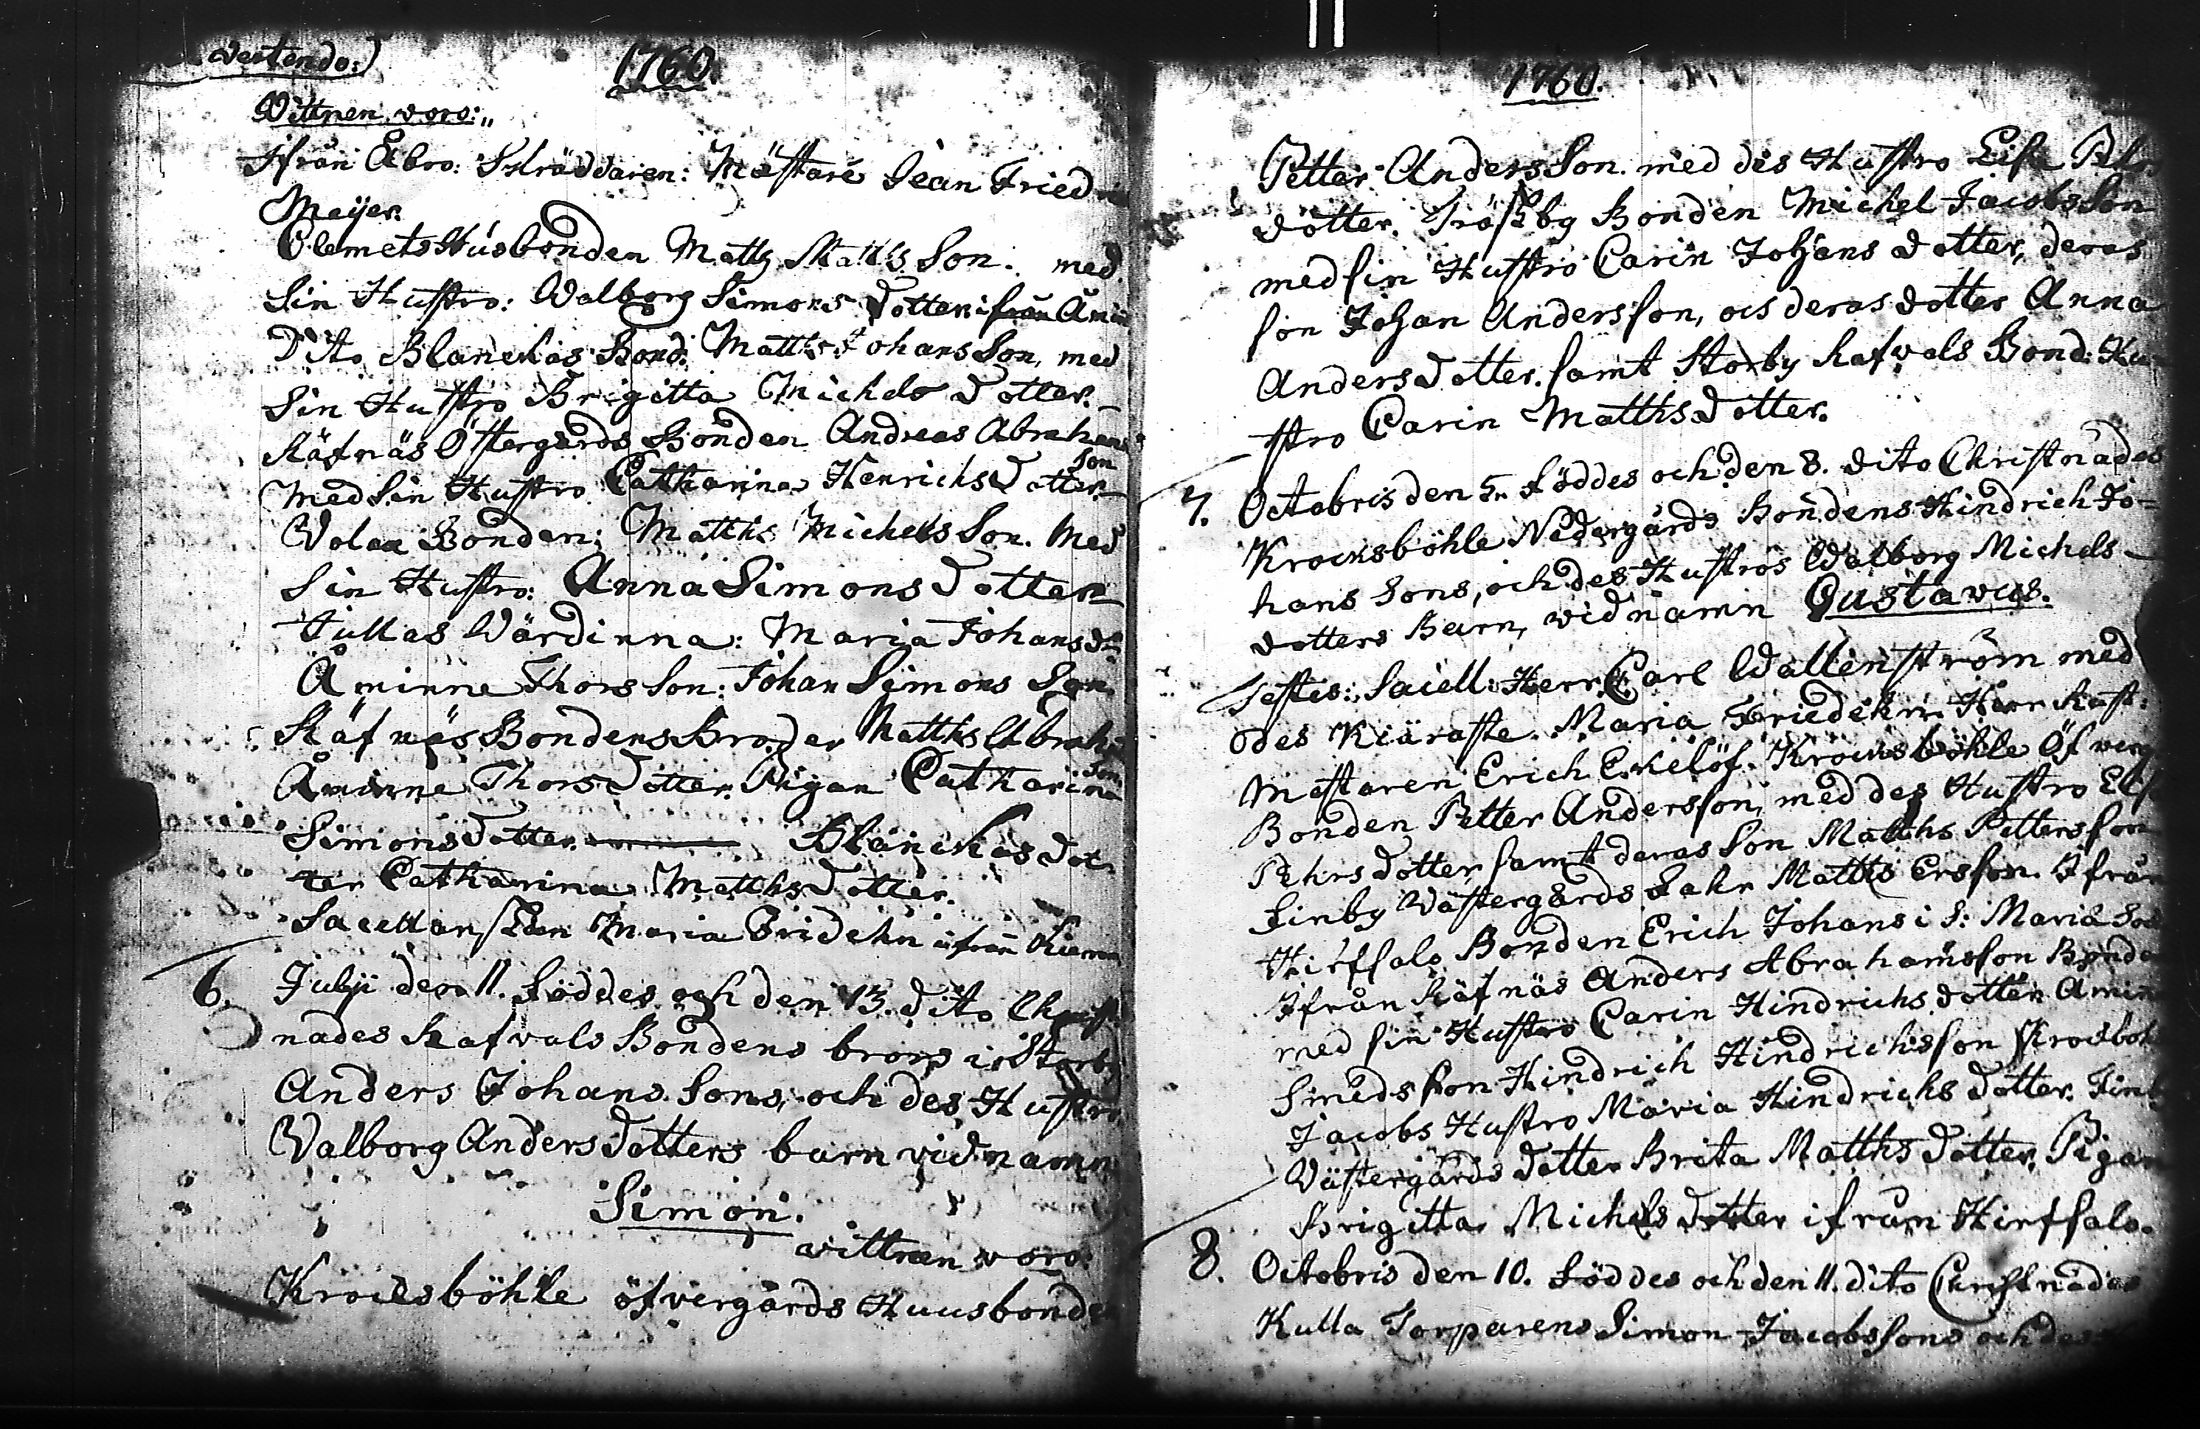 vertendo:)
1760.
Vittnen voro:,,
Ifrån Åbro: Skräddaren: Mästare Jean Friedri
Meyer.
Clemets Husbonden Matts Matts Son. med
Sin Hustro: Walborg Simons Dotter ifrån
Dito Blanckas Bond: Matths Johans Son, med
Sin Hustro Brigitta Michels Dotter.
Käfnäs Östergårds Bonden Andreas Abrahams
son
med Sin Hustro Catharina Henrichs Dotter.
Bonden: Matths Michels Son. Med
Sin Hustro: Anna Simons Dotter
Tullas Wärdinna: Maria Johans dr:
Åminne Thors Son: Johan Simons Son.
Käfnäs Bondens Broder Matths Abrah:
son
Åminne Thors Dotter. Pigan Catharina
Simons Dotter. Blanckas dot-
ter Catharina Matths Dotter.
Sacellan Maria Fridelin ifrån
6. Julii den 11. föddes och den 13. dito Christ
nades Rafvals Bondens brors i Storby
Anders Johans Sons, och des Hustro
Valborg Anders Dotters barn vid namn
Simon.
vittnen voro:
Krocksböhle öfvergårds Huusbonden
1760.
Petter Anders Son. med des Hustro Lisa Pehrs
dotter. Träskby Bonden Michel Jacobs Son
med sin Hustro Carin Johans dotter, deras
son Johan Andersson, och deras dotter Anna
Anders dotter. samt Storby Rafvals Bond: Hu-
stro Carin Matths dotter.
7. Octobris den 5. föddes och den 8. dito Christnades
Krocksböhle Nedergårds Bondens Hindrich Jo-
hans Sons, och des Hustros Walborg Michels-
dotters Barn, vid namn Gustavus.
Testes: Sacell: Herr Carl Wallenström med
des Kiäraste Maria Friedelin. Herr
Mästaren Erich Ekelöf. Krocksböhle Öfverg
Bonden Petter Andersson, med des Hustro Els
Pehrs dotter, samt deras Son Matths Pettersson
Finby Västergårds Matths Ersson. Ifrån
Hirfsalo Bonden Erich Johans i S: Maria
Ifrån Käfnäs Anders Abrahamsson Bonde
med sin Hustro Carin Hindrichs dotter. Åminne
Smeds Son Hindrich Hindrichsson Krocksböh
Jacobs Hustro Maria Hindrichs dotter. Finb
Västergårds dotter Brita Matths dotter, Pigan
Brigitta Michels dotter ifrån Hirfsalo.
8. Octobris den 10. föddes och den 11. dito Christnades
Kulla Torparens Simon Jacobssons och des